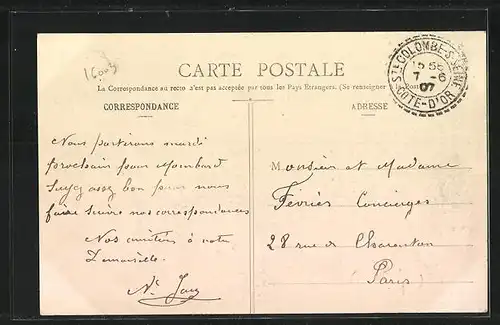 16003
CARTE POSTALE
La Correspondance au recto n'est pas acceptée par tous les Pays Etrangers. (Se renseigner à la Poste)
CORRESPONDANCE
ADRESSE
STE COLOMBE-S-SEINE
15 55
7 - 6
07
COTE-D'OR
Nous partirons mardi
prochain pour Montbard
Soyez assez bon pour nous
faire suivre nos correspondances
Nos amitiés à votre
Demoiselle.
Monsieur et Madame
Février Concierges
28 rue de Charenton
Paris